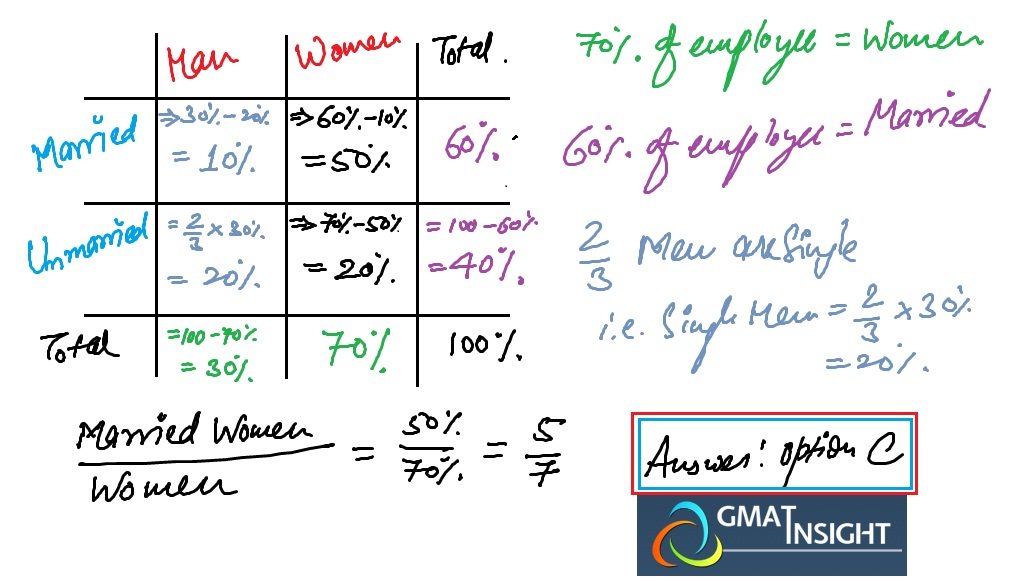 Man Women Total.
Married ⇒30%-20% ⇒60%-10% 60%.
= 10% =50%
Unmarried =2/3 x 30% ⇒70%-50% = 100-60%
= 20% = 20% =40%.
Total =100-70% 70% 100%.
= 30%.
70%. of employee = Women
60%. of employee = Married
2/3 Men are Single
i.e. Single Men = 2/3 x 30%
= 20%.
Married Women/Women = 50%/70% = 5/7
Answer: option C
GMAT INSIGHT